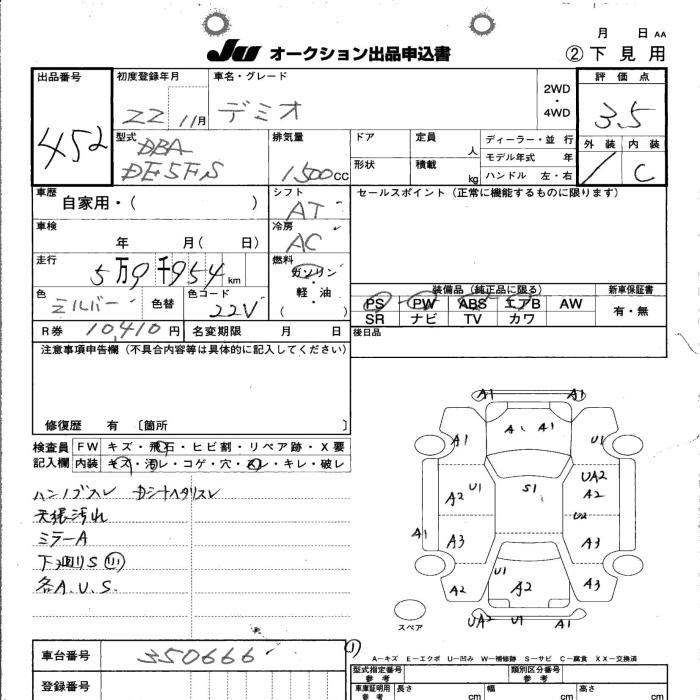 JU オークション出品申込書
月 日 AA
② 下 見 用
出品番号
452
初度登録年月
22 11月
車名・グレード
デミオ
2WD
・
4WD
評 価 点
3.5
外 装 内 装
/ C
型式
DBA
DE5FS
排気量
1500cc
ドア 定員 人
形状 積載 kg
ディーラー・並 行
モデル年式 年
ハンドル 左・右
車歴
自家用・( )
シフト
AT
セールスポイント（正常に機能するものに限ります）
車検
年 月( 日)
冷房
AC
走行
5万9千954km
燃料
ガソリン
・
軽 油
( )
色
シルバー
色替
色コード
22V
装備品（純正品に限る）
PS PW ABS エアB AW
SR ナビ TV カワ
新車保証書
有・無
R券 10,410円
名変期限 月 日
後日品
注意事項申告欄（不具合内容等は具体的に記入してください）
修復歴 有 〔箇所 〕
検査員
記入欄
FW キズ・飛石・ヒビ割・リペア跡・X要
内装 キズ・汚レ・コゲ・穴・スレ・キレ・破レ
天張汚れ
ミラーA
下廻りS
各A.U.S.
A1 A1
A1 A A1 U1
A2 U1 S1 UA2
A2
U2
A1 A3 A3
A2 U1 A2 A2
UA2 U1 A1
スペア
A－キズ E－エクボ U－凹み W－補修跡 S－サビ C－腐食 XX－交換済
車台番号 350666
登録番号
型式指定番号
参 考
類別区分番号
参 考
車庫証明用
参 考
長さ cm
幅 cm
高さ cm